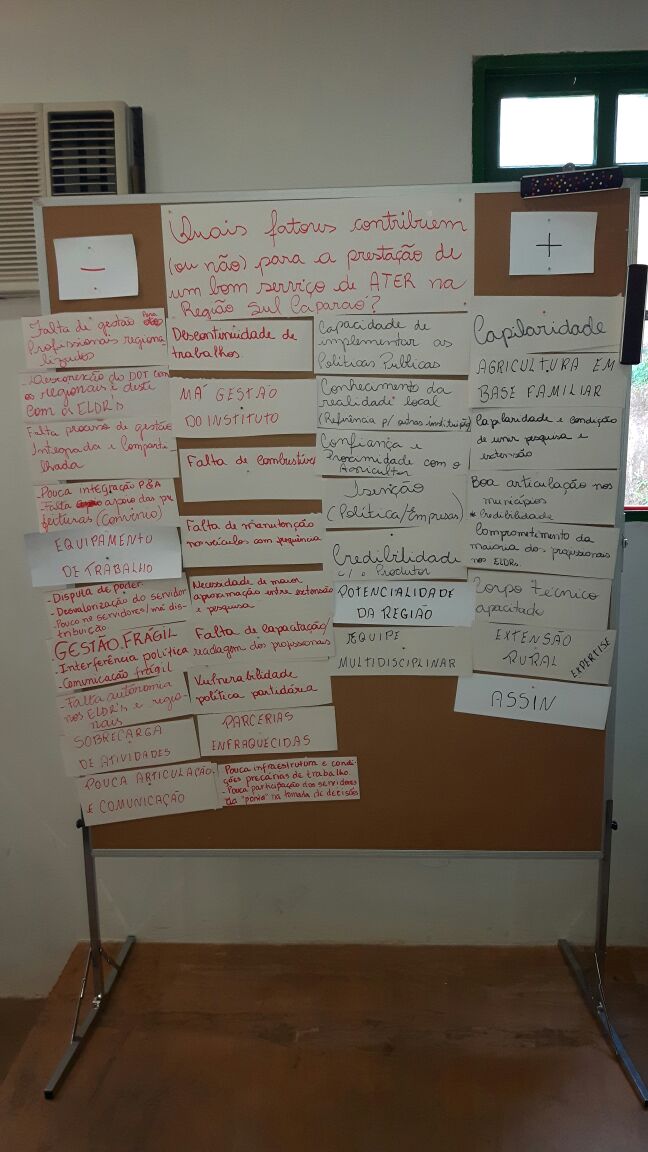 Quais fatores contribuem
(ou não) para a prestação de
um bom serviço de ATER na
Região Sul Caparaó?
–
+
Falta de gestão para
Profissionais regiona
lizados
- Desconexão do DOT com
os regionais e deste
com os ELDR's
Falta processo de gestão
Integrada e comparti-
lhada
- Pouca integração P&A
- Falta apoio das pre
feituras (Convênio)
EQUIPAMENTO
DE TRABALHO
- Disputa de poder.
- Desvalorização do servidor
- Pouco nº servidores/má dis-
tribuição
- GESTÃO FRÁGIL
- Interferência política
- Comunicação frágil
- Falta autonomia
nos ELDR's e regio-
nais
SOBRECARGA
DE ATIVIDADES
POUCA ARTICULAÇÃO
E COMUNICAÇÃO
Descontinuidade de
trabalhos.
MÁ GESTÃO
DO INSTITUTO
Falta de combustível
Falta de manutenção
nos veículos com frequência
Necessidade de maior
aproximação entre extensão
e pesquisa
Falta de capacitação/
reciclagem dos profissionais
Vulnerabilidade
política partidária
PARCERIAS
ENFRAQUECIDAS
- Pouca infraestrutura e condi-
ções precárias de trabalho.
- Pouca participação dos servidores
da "ponta" na tomada de decisões
Capacidade de
implementar as
Políticas Públicas
Conhecimento da
realidade local
(Referência p/ outras instituição)
Confiança e
Proximidade com o
Agricultor
Isenção
(Política/Empresas)
Credibilidade
c/ o Produtor
POTENCIALIDADE
DA REGIÃO
EQUIPE
MULTIDISCIPLINAR
Capilaridade
AGRICULTURA EM
BASE FAMILIAR
Capilaridade e condição
de unir pesquisa e
extensão
Boa articulação nos
municípios
* Credibilidade
Comprometimento da
maioria dos profissionais
nos ELDRs.
Corpo Técnico
capacitado
EXTENSÃO
RURAL
EXPERTISE
ASSIN